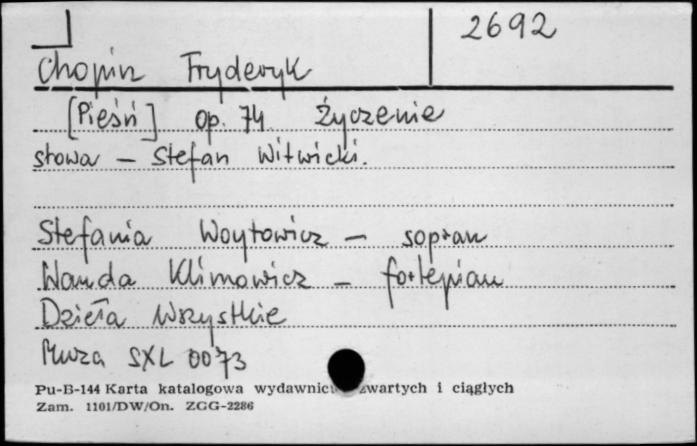 2692
Chopin Fryderyk
[Pieśń] op. 74 Życzenie
słowa – Stefan Witwicki.
Stefania Woytowicz – sopran
Wanda Klimowicz – fortepian
Dzieła Wszystkie
Muza SXL 0073
Pu-B-144 Karta katalogowa wydawnictw zwartych i ciągłych
Zam. 1101/DW/On. ZGG-2286